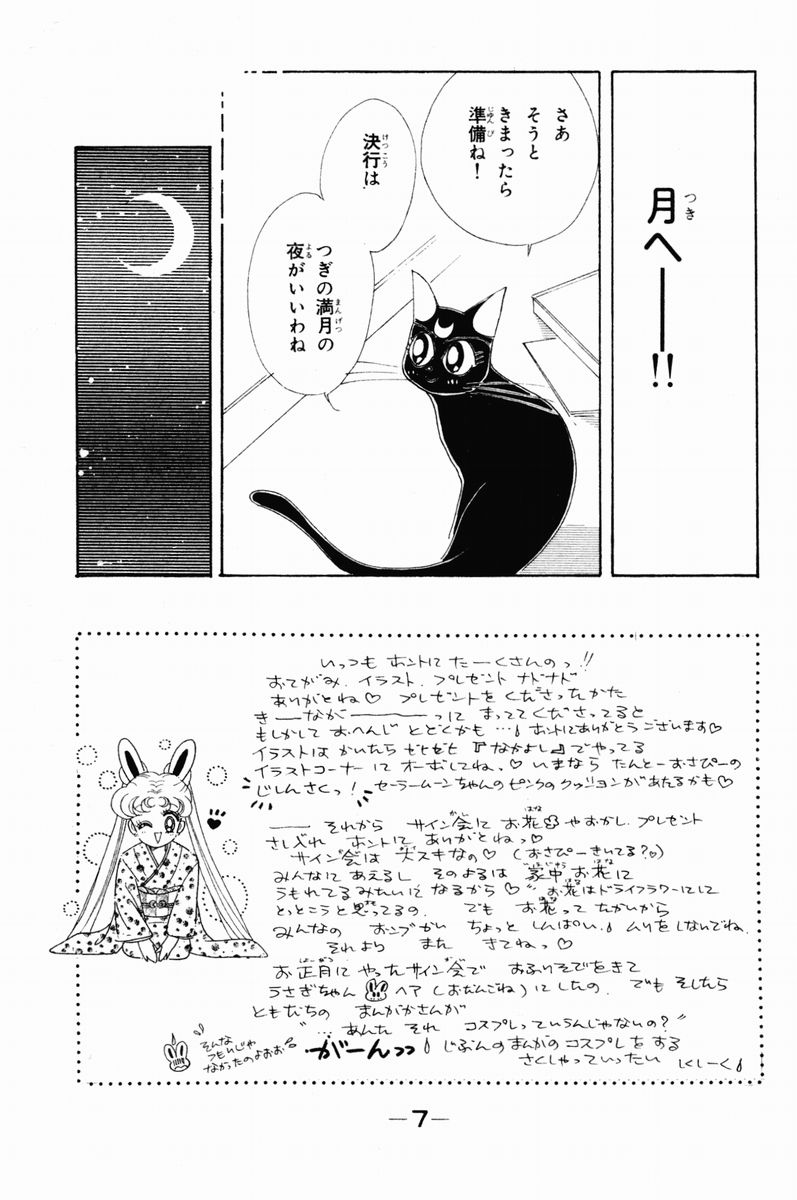 月へ──!!
つき
さあ
そうと
きまったら
準備ね!
じゅんび
決行は
けっこう
つぎの満月の
まんげつ
夜がいいわね
よる
いっつも ホントに たーくさんのっ!!
おてがみ、イラスト、プレゼント ナドナド
ありがとね♡ プレゼントを くださったかた
きーーながーーーーっに まっててくださってると
もしかして おへんじ とどくかも…♪ ホントにありがとうございます♡
イラストは かいたら ゼヒゼヒ 『なかよし』でやってる
イラストコーナーに オーボしてねっ♡ いまなら たんとーおさぴーの
じしんさくっ! セーラームーンちゃんのピンクのクッションがあたるかも♡
── それから サイン会に お花やおかし、プレゼント
かい
はな
さし入れ ホントに ありがとねっ♡
サイン会は 大スキなの♡ (おさぴーきいてる?♡)
かい
みんなに あえるし そのよるは 家中 お花に
はな
うもれてるみたいに なるから♡ お花はドライフラワーにして
とっとこうと思ってるの。 でも お花って たかいから
みんなの おこづかい ちょっと しんぱい。 ムリをしないでね。
それより また きてねっ♡
お正月に やったサイン会で おふりそでをきて
しょうがつ
かい
うさぎちゃん ヘア (おだんごね)にしたの。 でも そしたら
ともだちの まんがかさんが
“…あんた それ コスプレっていうんじゃないの?”
がーんっっ じぶんのまんがの コスプレをする
さくしゃっていったい しくしーく
そんな
つもりじゃ
なかったのよおお
—7—